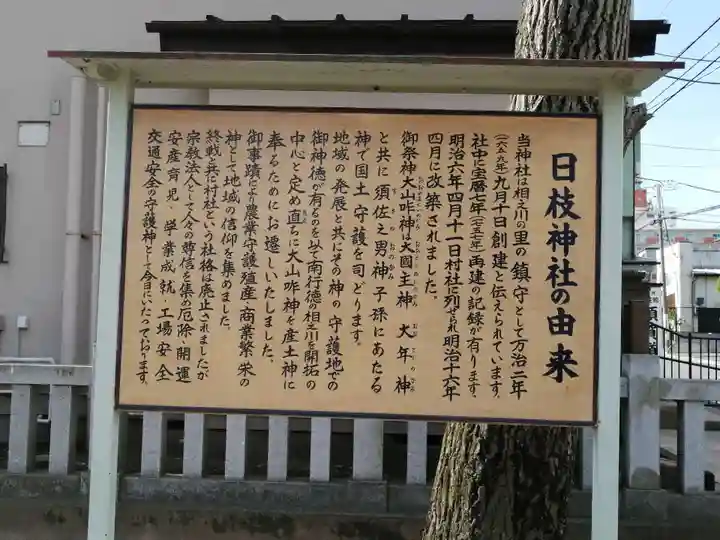 日枝神社の由来
当神社は相之川の里の鎮守として万治二年
(一六五九年)九月十日創建と伝えられています。
社中に宝暦七年(一七五七年)再建の記録が有ります。
明治六年四月十一日村社に列せられ明治十六年
四月に改築されました。
御祭神大山咋神は大國主神 大年神
と共に 須佐之男神の子孫にあたる
神で国土守護を司どります。
地域の発展と共にその神の守護地での
御神徳が有るのを以て南行徳の相之川を開拓の
中心と定め直ちに大山咋神を産土神に
奉るためにお遷しいたしました。
御事蹟により農業守護殖産・商業繁栄の
神として地域の信仰を集めました。
終戦と共に村社という社格は廃止されましたが
宗教法人として人々の尊信を集め厄除・開運
安産育児・学業成就・工場安全
交通安全の守護神として今日にいたっております。